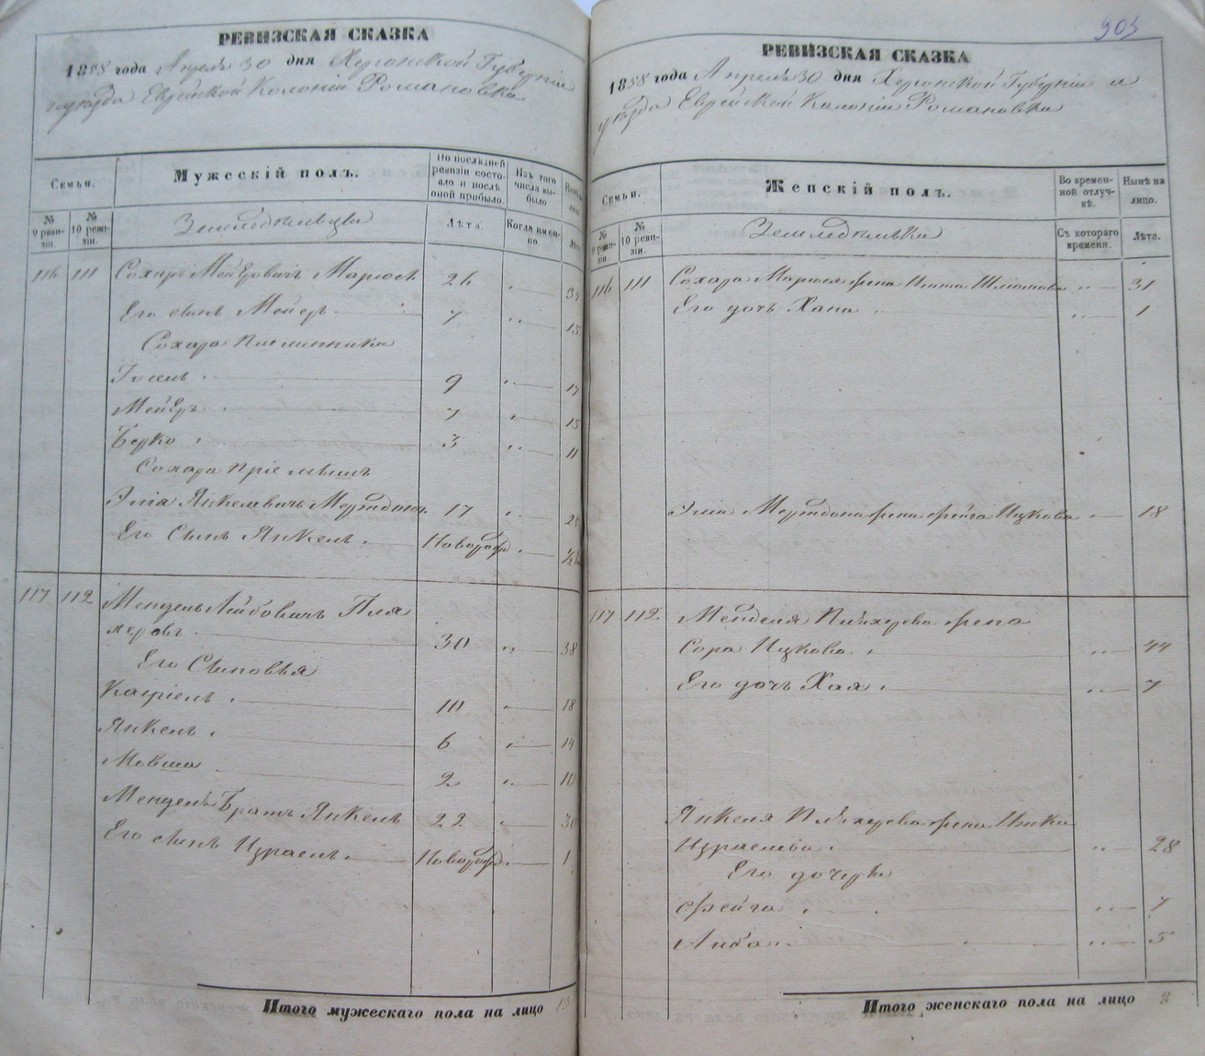 РЕВИЗСКАЯ СКАЗКА
1858 года Апреля 30 дня Херсонской Губерніи
и уезда Еврейской Колоніи Романовки
Семьи.
Мужескій полъ.
По последней ревизіи состояло и после оной прибыло.
Изъ того числа выбыло
№ 9 ревизіи.
№ 10 ревизіи.
Земледельцы
Лѣта.
Когда именно.
лѣта
116 111 Сохаръ Мееровичъ 26 34
Его сынъ Мейеръ 7 15
Сохара Племянники
Іосель 9 17
Мейеръ 7 15
Берко 3 11
Сохара пріемышъ
Элія Янкелевичъ 17
Его Сынъ Янкель Новорож
117 112 Мендель Лейбовичъ
30 38
Его Сыновья
10 18
Янкель 6 14
Мовша 2 10
Менделя Братъ Янкель 22 30
Его сынъ Израель Новорож 1
Итого мужескаго пола на лицо 13
903
РЕВИЗСКАЯ СКАЗКА
1858 года Апреля 30 дня Херсонской Губерніи и
уезда Еврейской Колоніи Романовки
Семьи.
Женскій полъ.
Во временной отлучкѣ.
Нынѣ на лицо.
№ 9 ревизіи.
№ 10 ревизіи.
Земледелки
Съ котораго времени.
Лѣта.
116 111 Сохара жена Шлиомова 31
Его дочь Хана 1
Эліи жена Фейга Ицкова 18
117 112 Менделя жена
Сора Ицкова 44
Его дочь Хая 7
Янкеля жена Итка
Израелева 28
Его дочери
Фейга 7
Либа 5
Итого женскаго пола на лицо 8